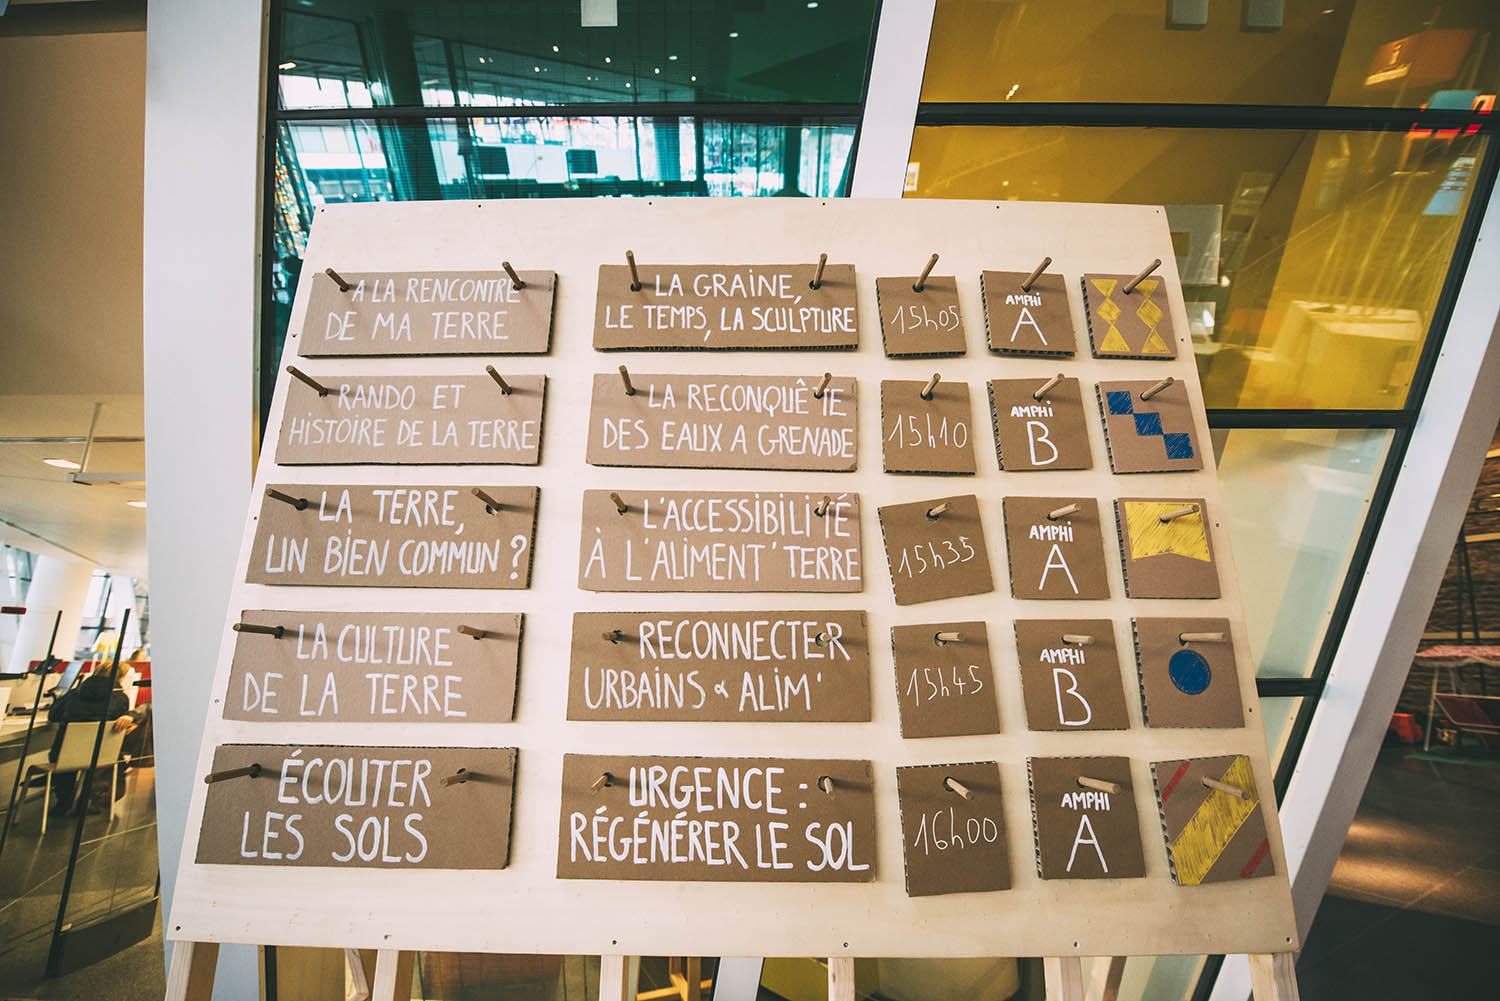 A LA RENCONTRE
DE MA TERRE
LA GRAINE,
LE TEMPS, LA SCULPTURE
15h05
AMPHI
A
RANDO ET
HISTOIRE DE LA TERRE
LA RECONQUÊTE
DES EAUX A GRENADE
15h10
AMPHI
B
LA TERRE,
UN BIEN COMMUN ?
L'ACCESSIBILITÉ
À L'ALIMENT'TERRE
15h35
AMPHI
A
LA CULTURE
DE LA TERRE
RECONNECTER
URBAINS & ALIM'
15h45
AMPHI
B
ÉCOUTER
LES SOLS
URGENCE :
RÉGÉNÉRER LE SOL
16h00
AMPHI
A